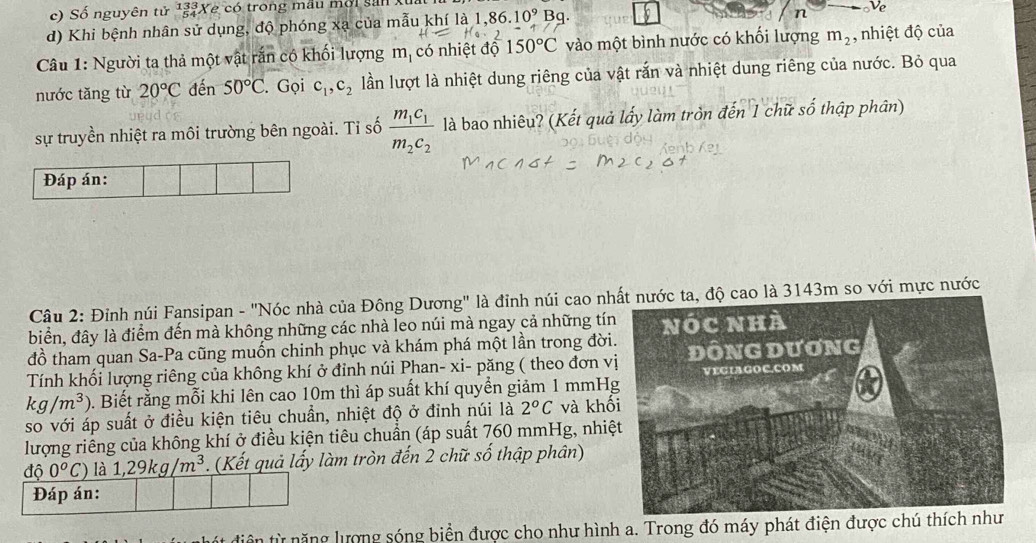 c) Số nguyên tử ¹³³₅₄Xe có trong mẫu mới sản xuất là
d) Khi bệnh nhân sử dụng, độ phóng xạ của mẫu khí là 1,86.10⁹ Bq.
Câu 1: Người ta thả một vật rắn có khối lượng m₁ có nhiệt độ 150°C vào một bình nước có khối lượng m₂, nhiệt độ của
nước tăng từ 20°C đến 50°C. Gọi c₁, c₂ lần lượt là nhiệt dung riêng của vật rắn và nhiệt dung riêng của nước. Bỏ qua
sự truyền nhiệt ra môi trường bên ngoài. Tỉ số m₁c₁/m₂c₂ là bao nhiêu? (Kết quả lấy làm tròn đến 1 chữ số thập phân)
m₁c₁Δt = m₂c₂Δt
Đáp án:
Câu 2: Đỉnh núi Fansipan - "Nóc nhà của Đông Dương" là đỉnh núi cao nhất nước ta, độ cao là 3143m so với mực nước
biển, đây là điểm đến mà không những các nhà leo núi mà ngay cả những tín
đồ tham quan Sa-Pa cũng muốn chinh phục và khám phá một lần trong đời.
Tính khối lượng riêng của không khí ở đỉnh núi Phan- xi- păng ( theo đơn vị
kg/m³). Biết rằng mỗi khi lên cao 10m thì áp suất khí quyển giảm 1 mmHg
so với áp suất ở điều kiện tiêu chuẩn, nhiệt độ ở đỉnh núi là 2°C và khối
lượng riêng của không khí ở điều kiện tiêu chuẩn (áp suất 760 mmHg, nhiệt
độ 0°C) là 1,29kg/m³. (Kết quả lấy làm tròn đến 2 chữ số thập phân)
Đáp án:
NÓC NHÀ
ĐÔNG DƯƠNG
VEGIAGOC.COM
điện từ năng lượng sóng biển được cho như hình a. Trong đó máy phát điện được chú thích như